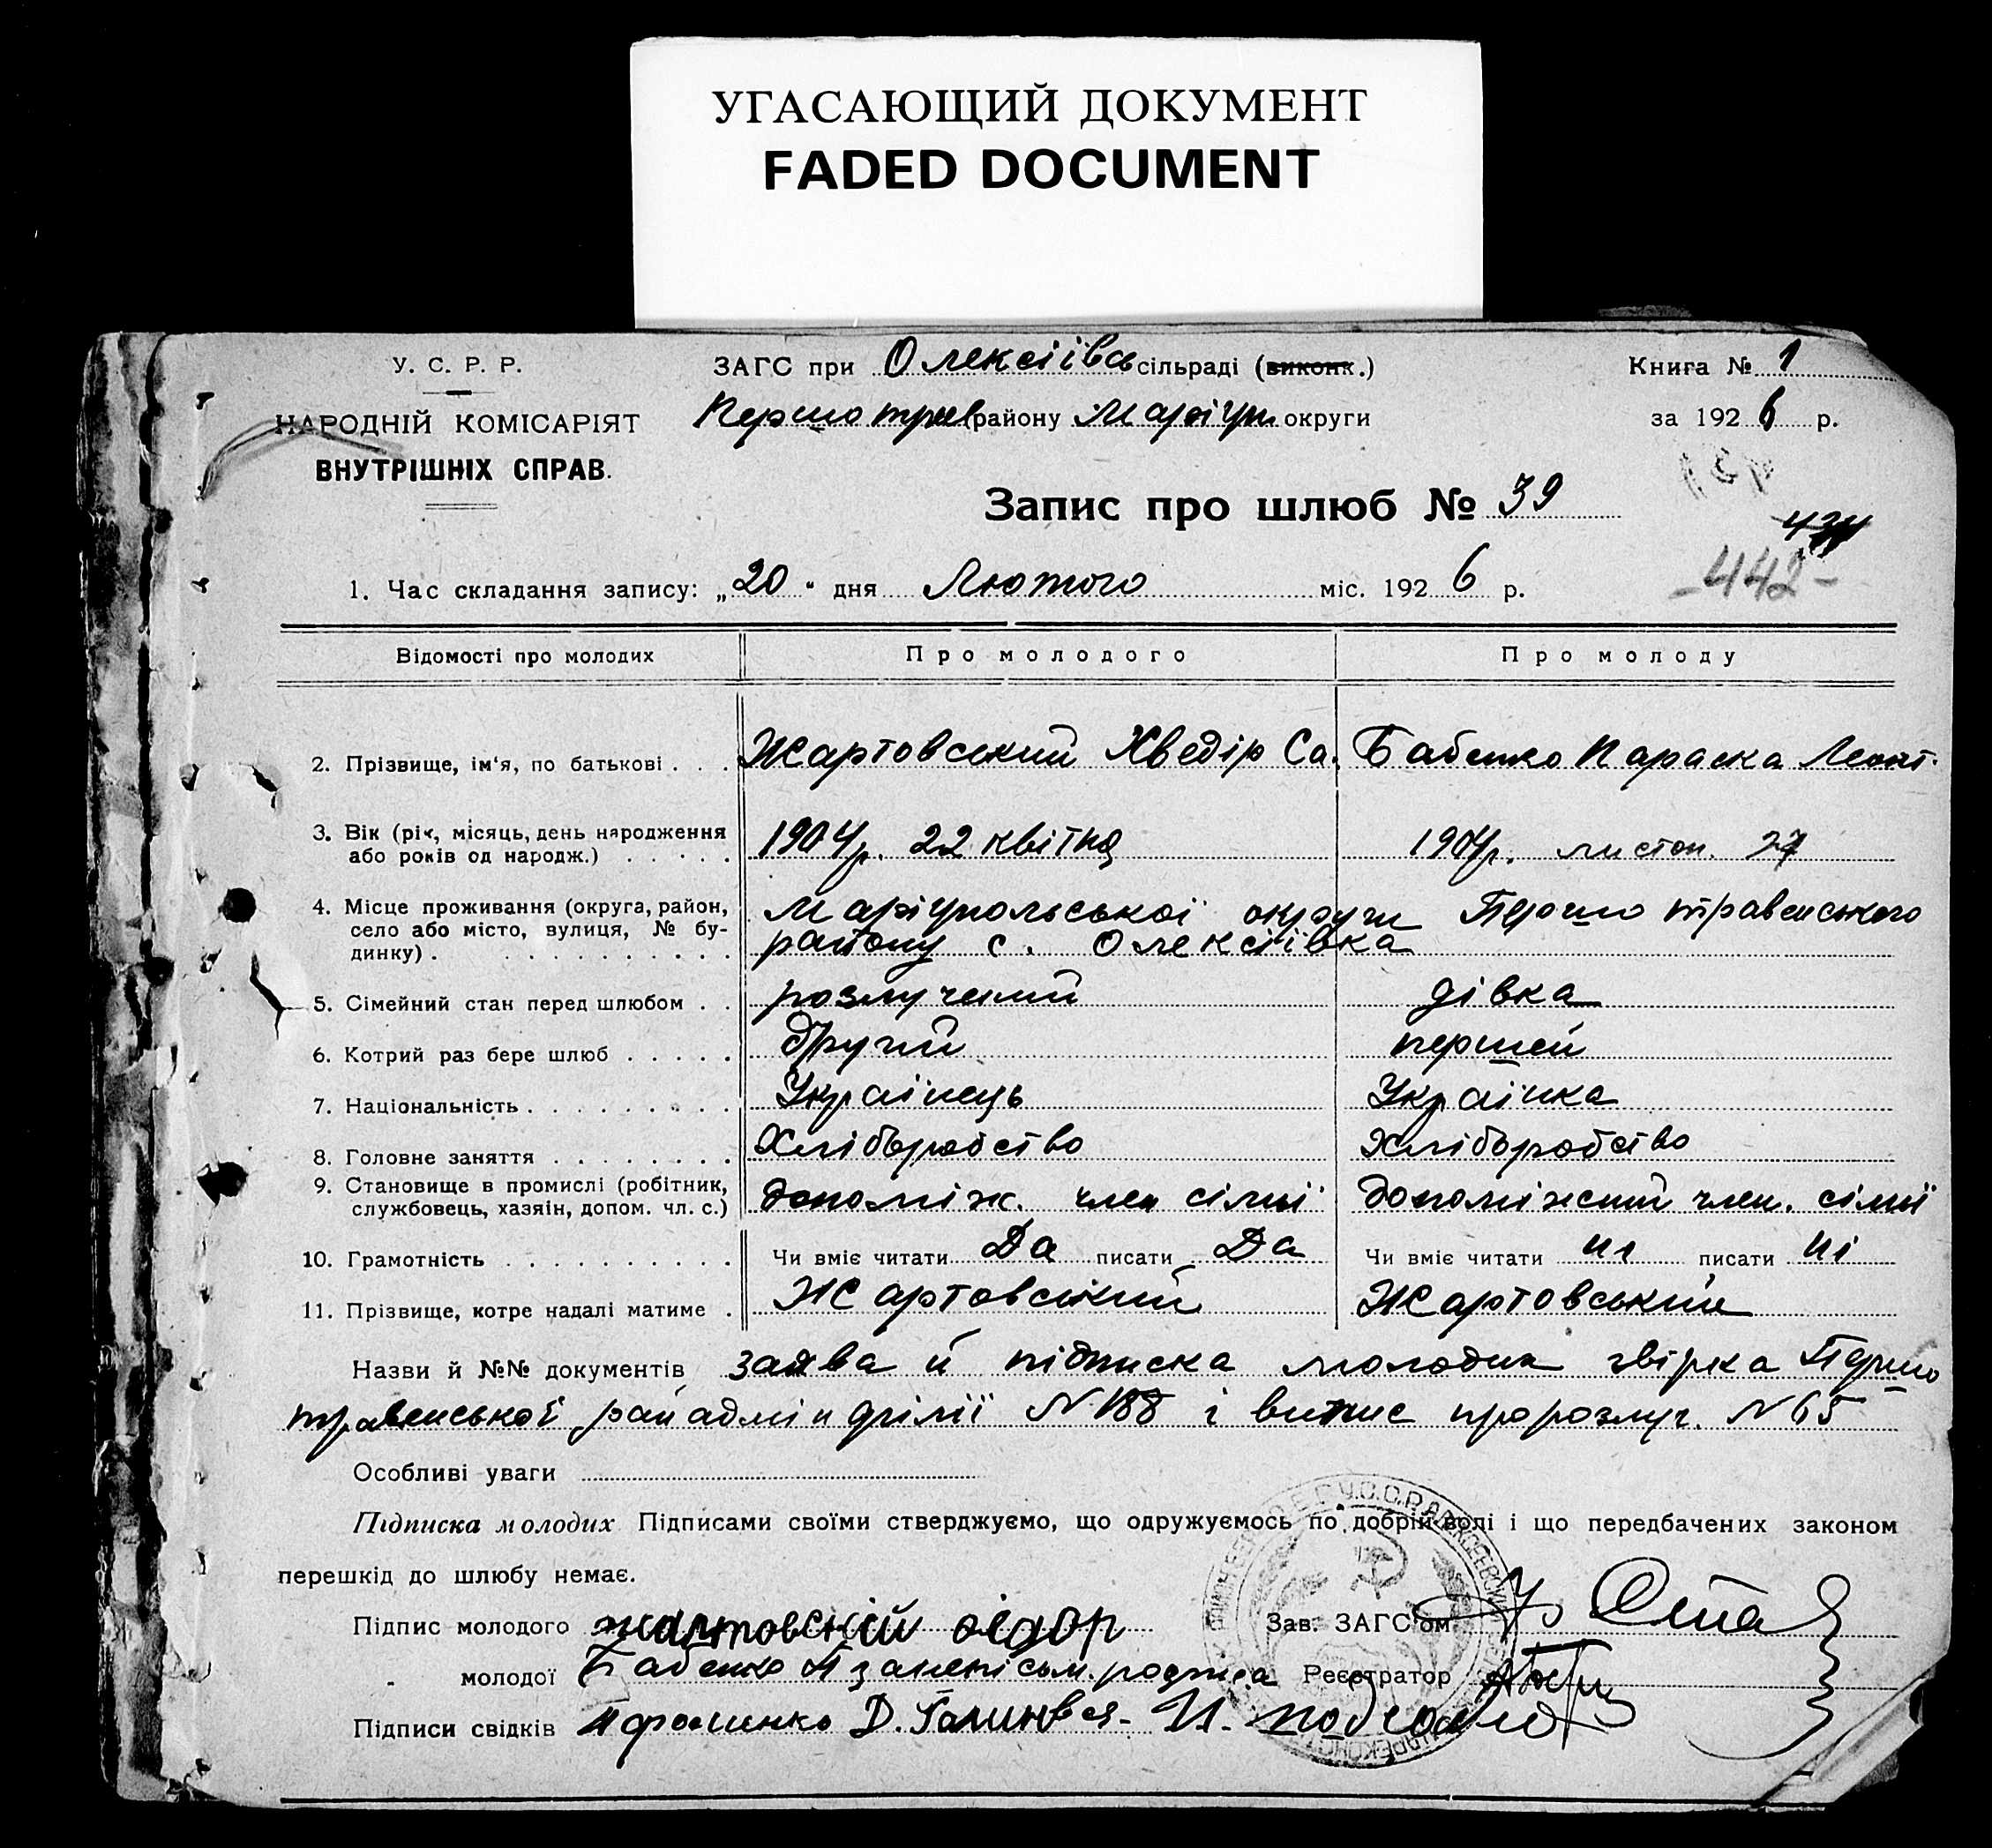 УГАСАЮЩИЙ ДОКУМЕНТ
FADED DOCUMENT
У. С. Р. Р.
НАРОДНІЙ КОМІСАРІЯТ
ВНУТРІШНІХ СПРАВ.
ЗАГС при Олексіївс сільраді (виконк.)
Першотрав району Маріуп округи
Книга № 1
за 1926 р.
Запис про шлюб № 39
442
1. Час складання запису: „20" дня Лютого міс. 1926 р.
Відомості про молодих Про молодого Про молоду
2. Прізвище, ім'я, по батькові . . . Жартовський Хведір Са. Бабенко Параска Леонт.
3. Вік (рік, місяць, день народження 1904р. 22 квітня 1904р. листоп. 27
або років од народж.) . . . . .
4. Місце проживання (округа, район, Маріупольської округи Першо травенського
село або місто, вулиця, № бу- району с. Олексіївка
динку) . . . . . . . . . .
5. Сімейний стан перед шлюбом . . розлучений дівка
6. Котрий раз бере шлюб . . . . . другий першей
7. Національність . . . . . . . . . Українець Українка
8. Головне заняття . . . . . . . . Хліборобство Хліборобство
9. Становище в промислі (робітник, допоміж. член сімьї допоміжний член. сімьї
службовець, хазяін, допом. чл. с.)
10. Грамотність . . . . . . . . . . Чи вміє читати Да писати Да Чи вміє читати ні писати ні
11. Прізвище, котре надалі матиме . Жартовський Жартовський
Назви й №№ документів заява й підписка молодих звірка Першо
травенської райадмін філії N 188 і випис про розлуч. N 65
Особливі уваги
Підписка молодих Підписами своїми стверджуємо, що одружуємось по добрій волі і що передбачених законом
перешкід до шлюбу немає.
Підпис молодого жартовскій фідор Зав. ЗАГС'ом
„ молодої Бабенко П за неписьм. Реєстратор
Підписи свідків Афоненко Д.